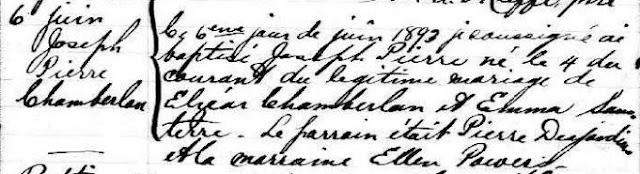 6 juin
Joseph
Pierre
Chamberlan
Le 6eme jour de juin 1893 je soussigné ai
baptisé Joseph Pierre né le 4 du
courant du legitime mariage de
Elzéar Chamberlan et Emma Sans
terre. Le parrain était Pierre Desjardins
et la marraine Ellen Powers